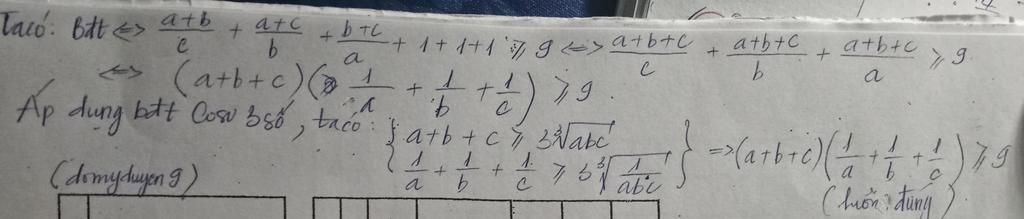 Ta có: Bđt <=> (a+b)/c + (a+c)/b + (b+c)/a + 1+1+1 ⩾ 9 <=> (a+b+c)/c + (a+b+c)/b + (a+b+c)/a ⩾ 9.
<=> (a+b+c)(1/a + 1/b + 1/c) ⩾ 9.
Áp dụng bđt Cosi 3 số, ta có: { a+b+c ⩾ 3∛abc
1/a + 1/b + 1/c ⩾ 3∛(1/abc) } => (a+b+c)(1/a + 1/b + 1/c) ⩾ 9
(domyduyen9) (luôn đúng)